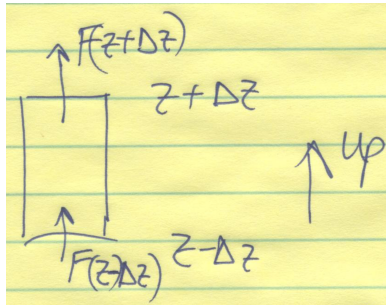 F(z+Δz)
z+Δz
up
z-Δz
F(z-Δz)